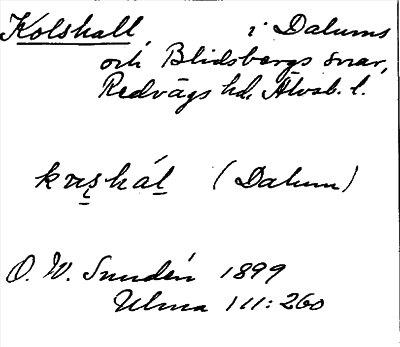 Kolshall, i Dalums
och Blidsbergs snar,
Redvägs hd. Älvsb. l.
(Dalum)
O. W. Sundén 1899
Ulma 111: 260